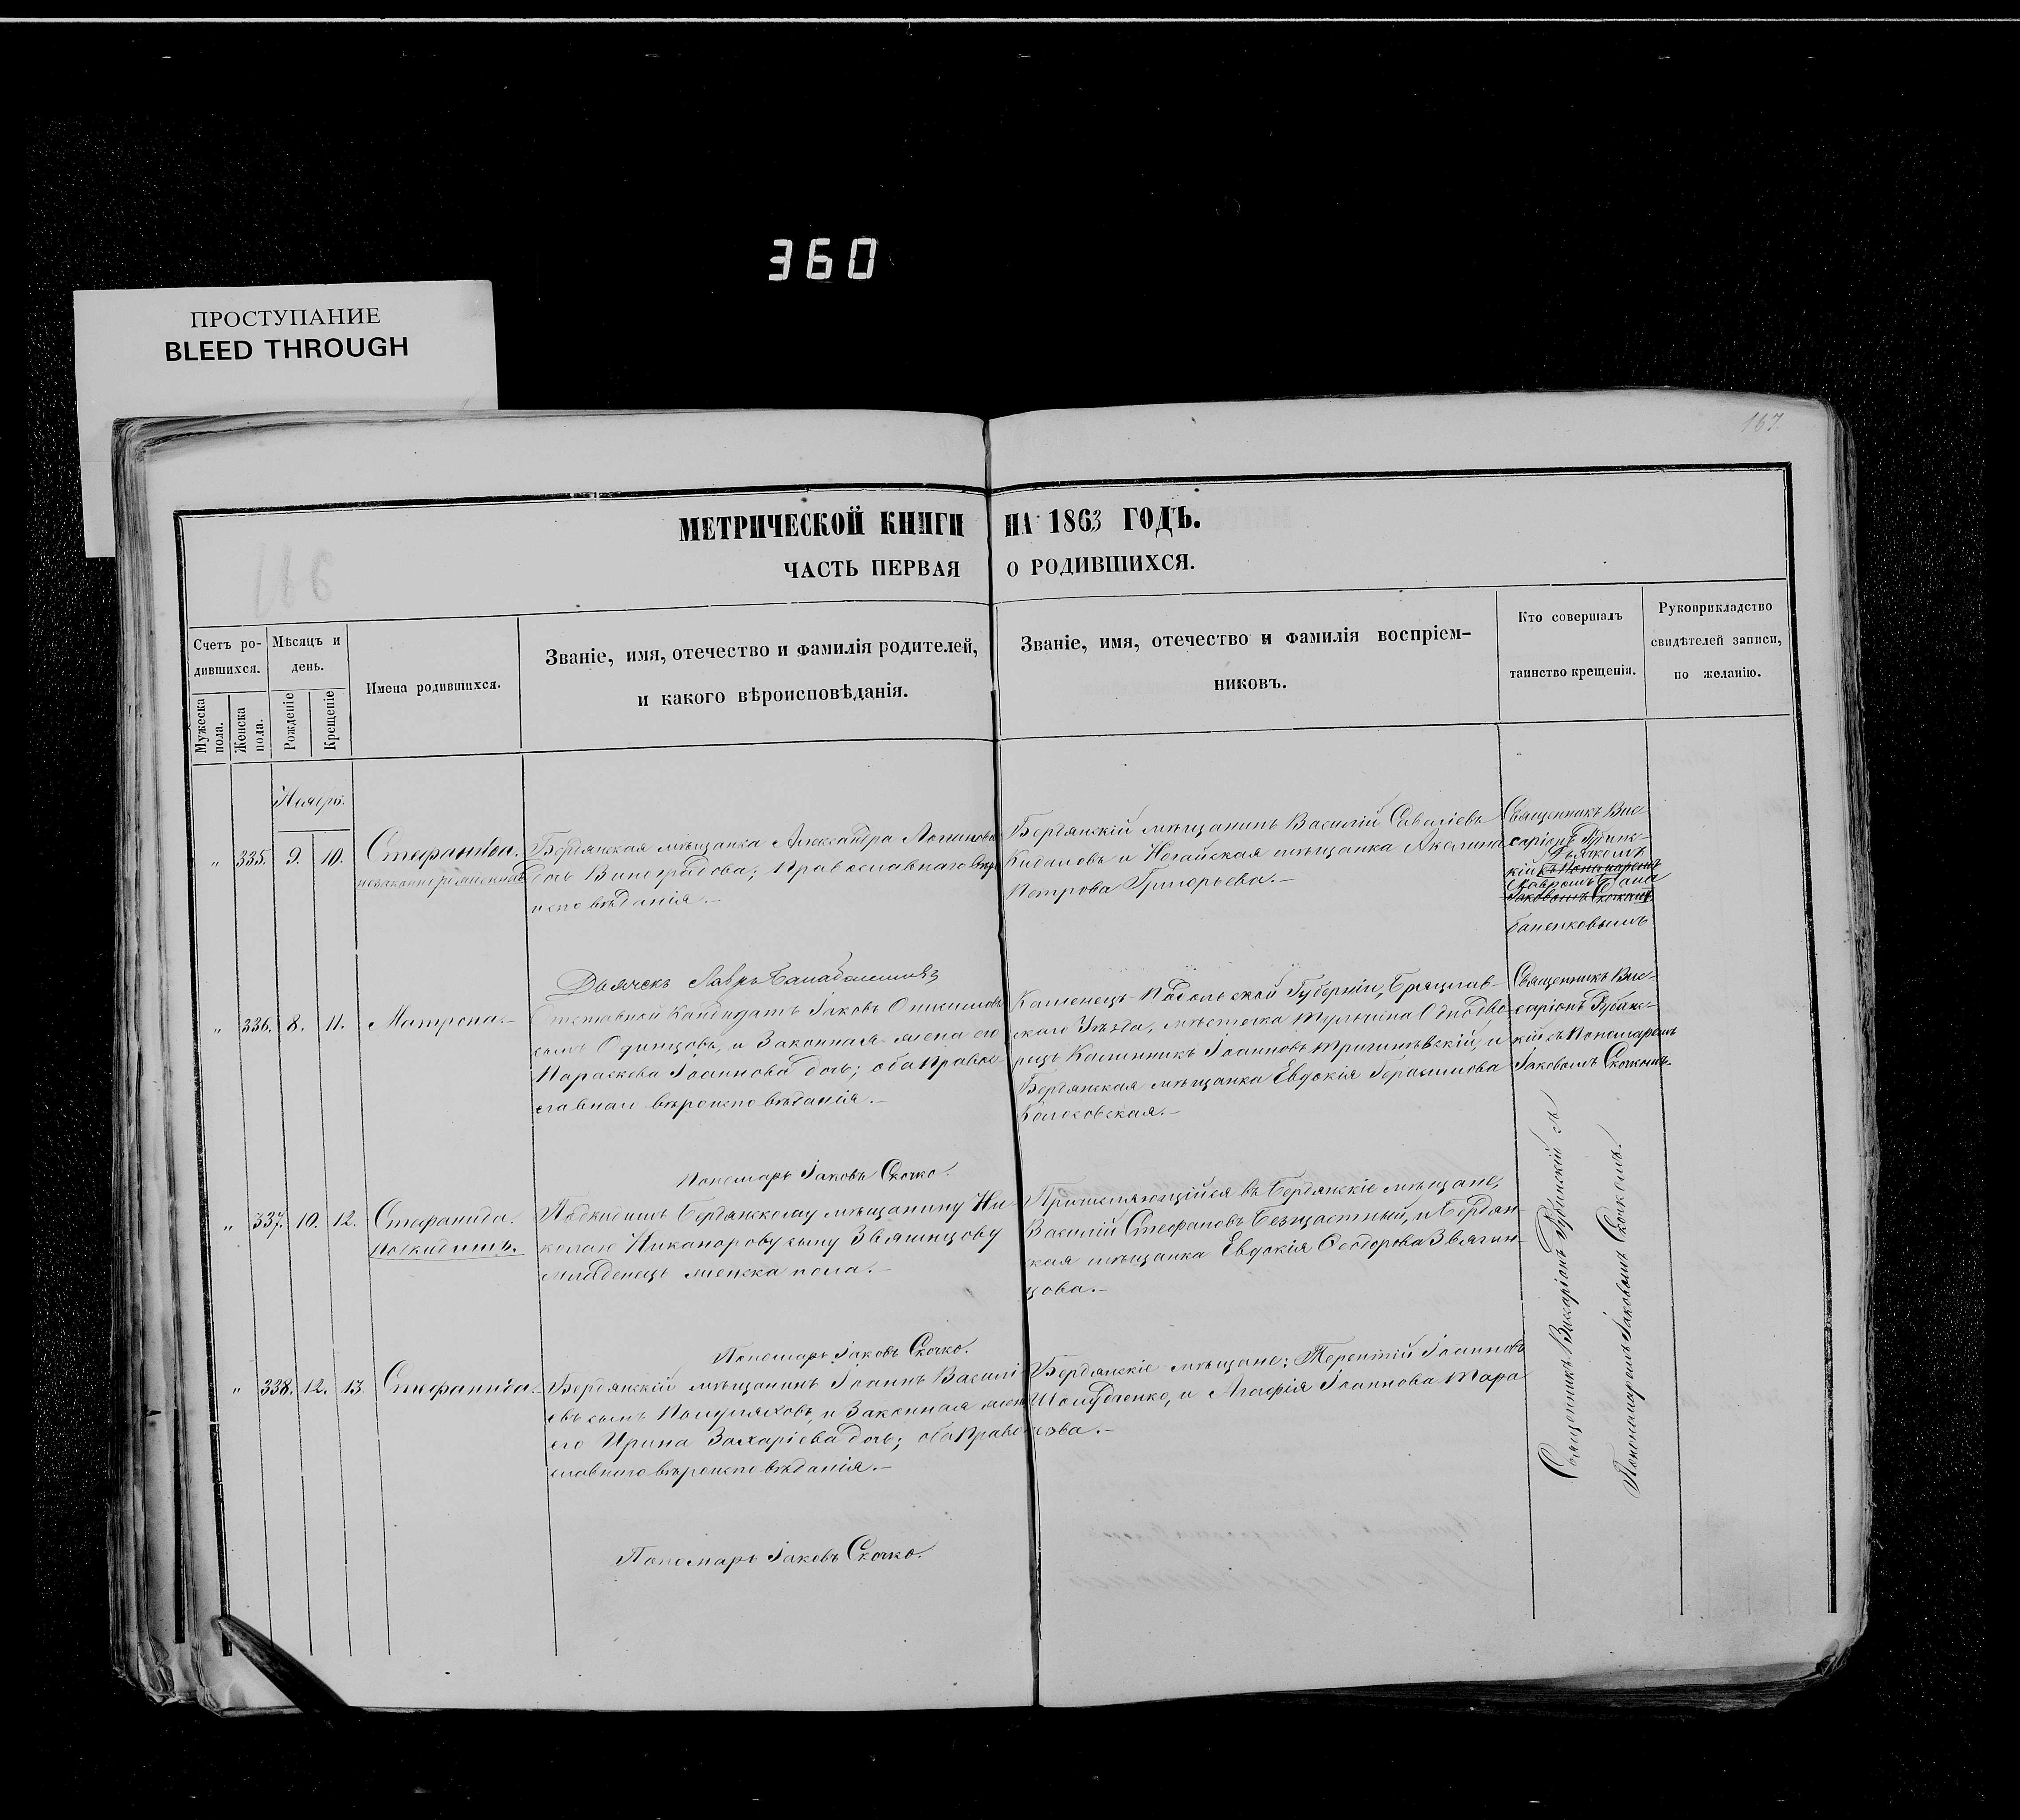 360
ПРОСТУПАНИЕ
BLEED THROUGH
167
166
МЕТРИЧЕСКОЙ КНИГИ НА 1863 ГОДЪ.
ЧАСТЬ ПЕРВАЯ О РОДИВШИХСЯ.
Счетъ ро-
дившихся.
Мужеска
пола.
Женска
пола.
Мѣсяцъ и
день.
Рожденіе
Крещеніе
Имена родившихся.
Званіе, имя, отечество и фамилія родителей,
и какого вѣроисповѣданія.
Званіе, имя, отечество и фамилія воспріем-
никовъ.
Кто совершалъ
таинство крещенія.
Рукоприкладство
свидѣтелей записи,
по желанію.
Ноябрь.
„ 335. 9. 10.
Стефанида.
незаконнорожденная
Бердянская мѣщанка Александра Логинова
дочь Виноградова; православнаго вѣро
исповѣданія.-
Бердянскій мѣщанинъ Василій Савеліевъ
Кидаловъ и Ногайская мѣщанка Акелина
Петрова Григорьева.-
Священникъ Вис-
саріонъ Рубанс-
кій съ Пономаремъ
Дьячкомъ
Лавромъ Бана
Іаковомъ Скочкомъ
баненковымъ
Дьячекъ Лавръ
„ 336. 8. 11.
Матрона.-
Отставной Кандидатъ Іаковъ Онисимовъ
сынъ Одинцовъ, и Законная жена его
Параскева Іоаннова дочь; оба Правос-
славнаго вѣроисповѣданія.-
Каменецъ-Подольской Губерніи, Брацлав-
скаго Уѣзда, мѣстечка Тульчина Однодво-
рецъ Калинникъ Іоанновъ и
Бердянская мѣщанка Евдокія Герасимова
Колосовская.-
Священникъ Вис-
саріонъ Рубанс-
кій съ Пономаремъ
Іаковомъ Скочкомъ.
Пономарь Іаковъ Скочко.
„ 337. 10. 12.
Стефанида.
Подкидышъ.
Подкидышъ Бердянскому мѣщанину Ни-
колаю Никанорову сыну Звягинцову
младенецъ женска пола.-
Причисляющійся въ Бердянскіе мѣщане,
Василій Стефановъ Безщастный, и Бердян
ская мѣщанка Евдокія Ѳеодорова Звягин-
цова.-
Пономарь Іаковъ Скочко.
„ 338. 12. 13.
Стефанида.
Бердянскій мѣщанинъ Іоаннъ Василі-
евъ сынъ Полуляховъ, и Законная жена
его Ирина Захаріева дочь; оба Право-
славнаго вѣроисповѣданія.-
Бердянскіе мѣщане: Терентій Іоанновъ
Шолудченко, и Агафія Іоаннова Тара
сова.-
Священникъ Виссаріонъ Рубанскій съ
Пономаремъ Іаковомъ Скочкомъ.
Пономарь Іаковъ Скочко.